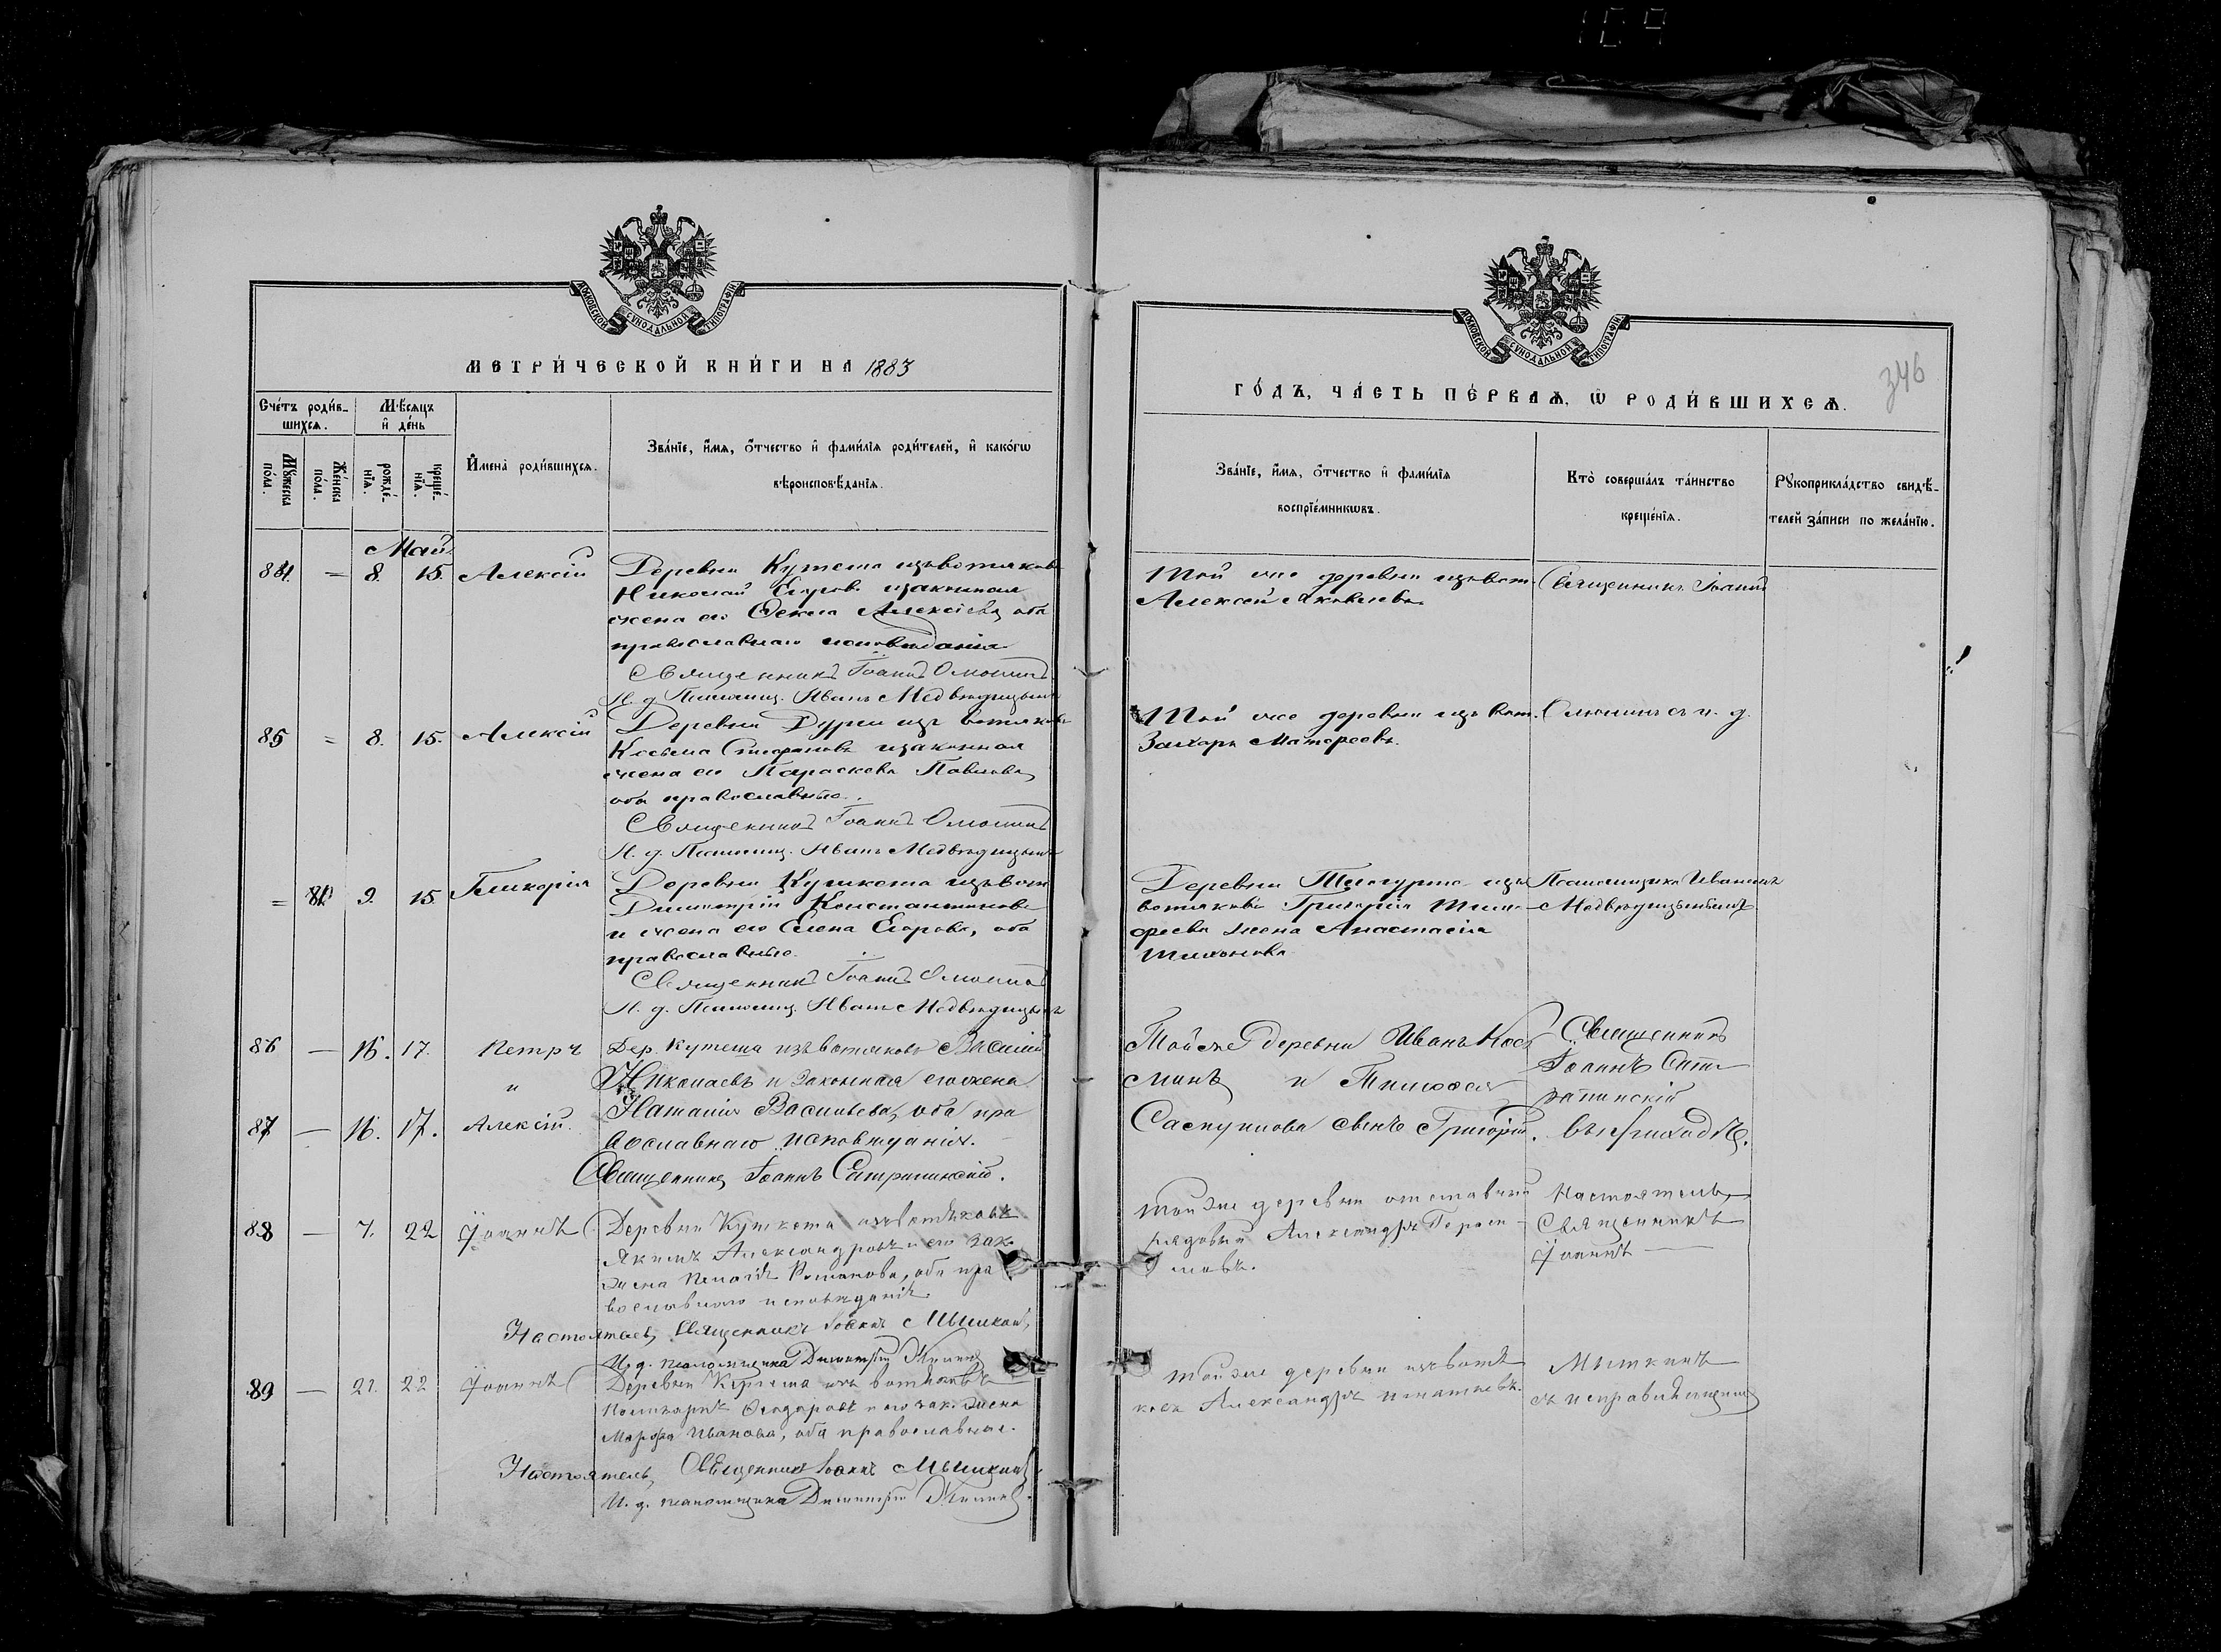 МОСКОВСКОЙ СѴНОДАЛЬНОЙ ТИПОГРАФІИ
МЕТРИ́ЧЕСКОЙ КНИ́ГИ НА 1883
Сче́тъ роди́в-
шихсѧ.
Мѣ́сѧцъ
и҆ де́нь
Мꙋ́жеска
по́ла.
Же́нска
по́ла.
рожде́-
нїѧ.
креще́-
нїѧ.
И҆мена̀ роди́вшихсѧ.
Зва́нїе, и҆́мѧ, ѻ҆́тчество и҆ фами́лїѧ роди́телей, и҆ како́гѡ
вѣроисповѣ́данїѧ.
Май
84. = 8. 15. Алексій
Деревни Кутеша изъ вотяковъ
Николай Егоровъ и законная
жена его Ѳекла Алексіева, оба
православнаго исповѣданія
Священникъ Іоаннъ
И. д. Псаломщ. Иванъ Медвѣдицынъ
85 = 8. 15. Алексій
Деревни изъ вотяковъ
Козьма Стефановъ и законная
жена его Параскева Павлова,
оба православные.
Священникъ Іоаннъ
И. д. Псаломщ. Иванъ Медвѣдицынъ
= 9. 15 Гликерія
Деревни изъ вотяк
Димитрій Константиновъ
и жена его Елена Егорова, оба
православные.
Священникъ Іоаннъ
И. д. Псаломщ. Иванъ Медвѣдицынъ
86 — 16. 17. Петръ
Дер. Кутеша изъ вотяковъ Василій
и
Николаевъ и законная его жена
87 — 16. 17. Алексій.
Наталія Васильева, оба пра
вославнаго исповѣданія.
Священникъ Іоаннъ
88 — 7. 22 Іоаннъ
Деревни изъ вотяковъ
Якимъ Александровъ и его зак.
жена Романова, оба пра
вославнаго исповѣданія.
Настоятель, Священникъ Іоаннъ Мышкинъ,
И. д. псаломщика Димитрій
89 — 21. 22 Іоаннъ
Деревни Кутеша изъ вотяковъ
Ѳеодоровъ и его зак. жена
Марѳа Иванова, оба православные.
Настоятель, Священникъ Іоаннъ Мышкинъ,
И. д. псаломщика Димитрій
МОСКОВСКОЙ СѴНОДАЛЬНОЙ ТИПОГРАФІИ
346
ГО́ДЪ, ЧА́СТЬ ПЕ́РВАѦ, Ѡ҆ РОДИ́ВШИХСѦ.
Зва́нїе, и҆́мѧ, ѻ҆́тчество и҆ фами́лїѧ
воспрїе́мникѡвъ.
Кто̀ соверша́лъ та́инство
креще́нїѧ.
Рꙋкоприкла́дство свидѣ́-
телей за́писи по жела́нїю.
Той же деревни изъ вот.
Алексѣй Яковлевъ.
Священникъ Іоаннъ
Той же деревни изъ вот.
Захаръ Матѳеевъ.
съ и. д.
Деревни изъ
вотяковъ Григорія Тимо-
феева жена Анастасія
Тихонова
Псаломщикъ Иваномъ
Медвѣдицынымъ
Той же деревни Иванъ Кос
минъ и
сынъ Григорій.
Священникъ
Іоаннъ
Той же деревни отставной
рядовый Александръ Гераси
мовъ.
Настоятель,
Священникъ
Іоаннъ
Той же деревни изъ вотя
ковъ Александръ Игнатьевъ.
Мышкинъ
съ исправл.